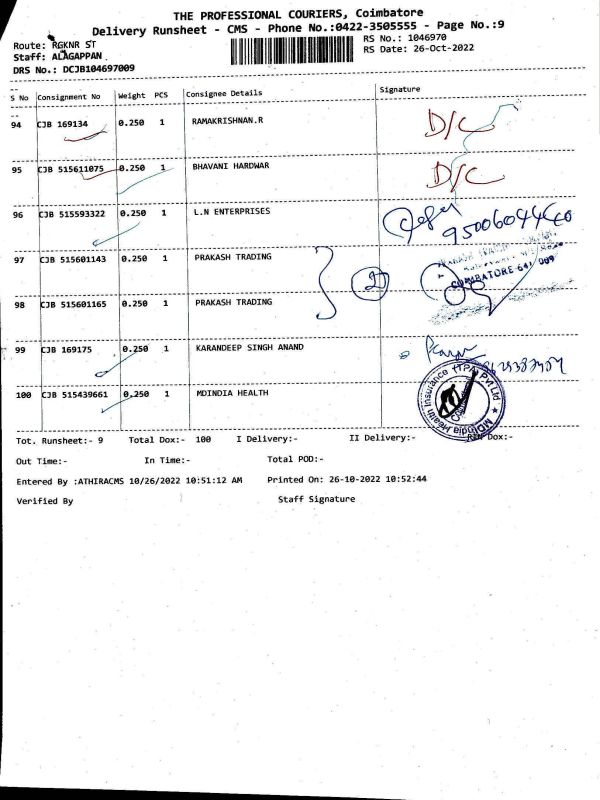 THE PROFESSIONAL COURIERS, Coimbatore
Delivery Runsheet - CMS - Phone No.:0422-3505555 - Page No.:9
Route: RGKNR ST
RS No.: 1046970
Staff: ALAGAPPAN
RS Date: 26-Oct-2022
DRS No.: DCJB104697009
S No Consignment No Weight PCS Consignee Details Signature
94 CJB 169134 0.250 1 RAMAKRISHNAN.R D/C
95 CJB 515611075 0.250 1 BHAVANI HARDWAR D/C
96 CJB 515593322 0.250 1 L.N ENTERPRISES
97 CJB 515601143 0.250 1 PRAKASH TRADING
2
COIMBATORE-641 009
98 CJB 515601165 0.250 1 PRAKASH TRADING
99 CJB 169175 0.250 1 KARANDEEP SINGH ANAND
100 CJB 515439661 0.250 1 MDINDIA HEALTH
MDIndia Health Insurance (TPA) Pvt Ltd
Tot. Runsheet:- 9 Total Dox:- 100 I Delivery:- II Delivery:- RTN Dox:-
Out Time:- In Time:- Total POD:-
Entered By :ATHIRACMS 10/26/2022 10:51:12 AM Printed On: 26-10-2022 10:52:44
Verified By Staff Signature